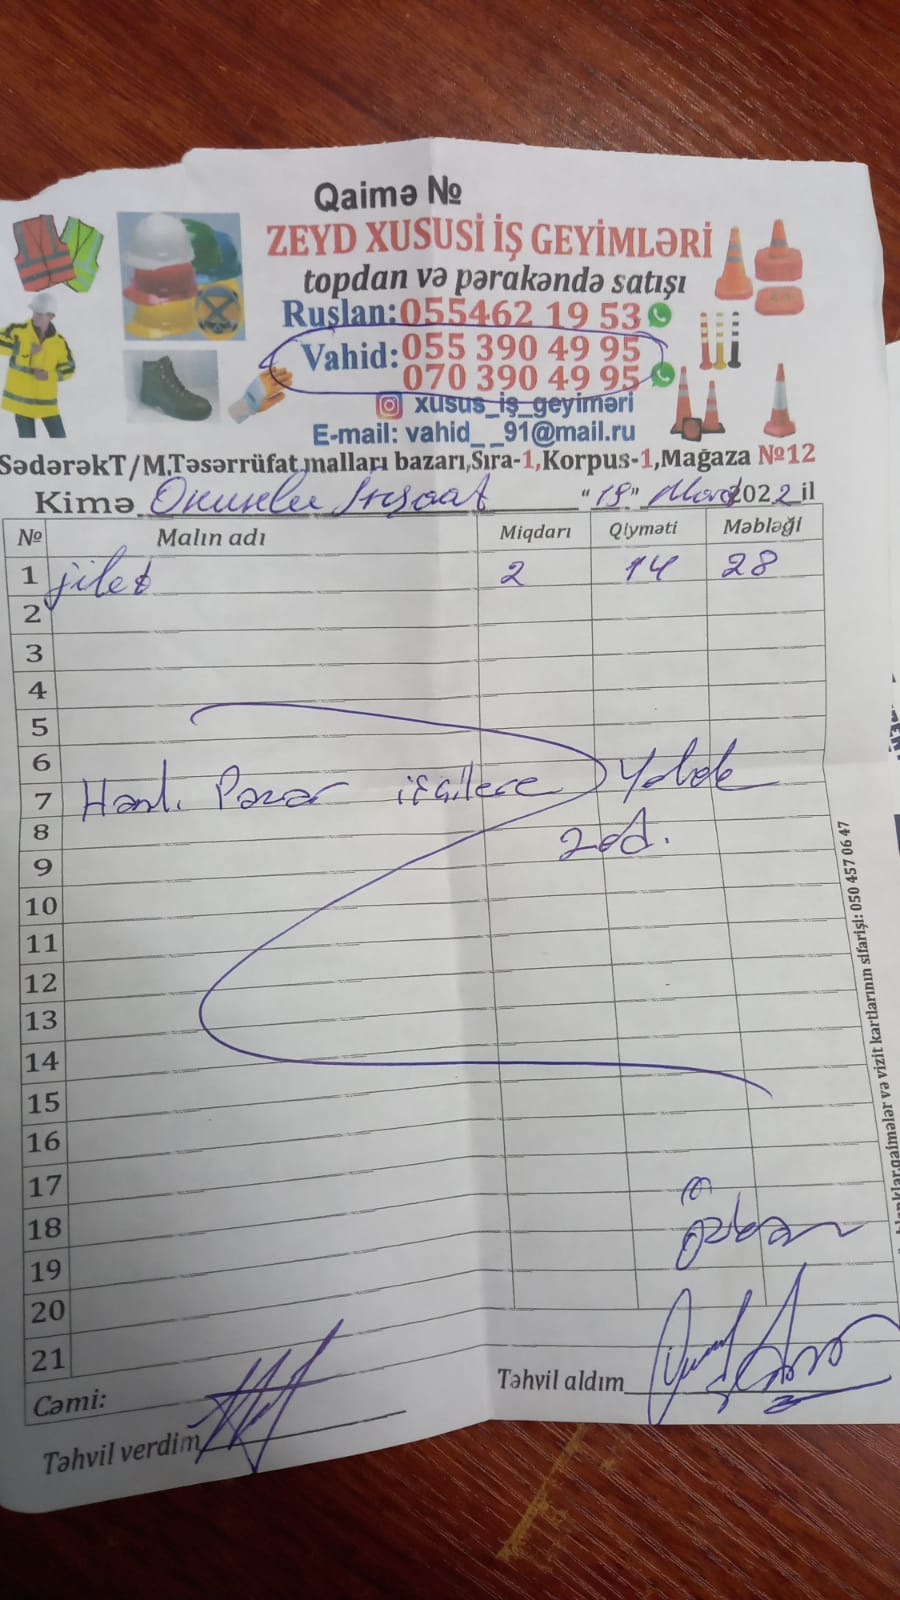 Qaimə №
ZEYD XUSUSİ İŞ GEYİMLƏRİ
topdan və pərakəndə satışı
Ruslan: 055462 19 53
Vahid: 055 390 49 95
070 390 49 95
xusus_iş_geyiməri
E-mail: vahid_ _91@mail.ru
SədərəkT/M,Təsərrüfat malları bazarı,Sıra-1,Korpus-1,Mağaza №12
Kimə "19" 2022 il
№ Malın adı Miqdarı Qiyməti Məbləği
1 jilet 2 14 28
2
3
4
5
6
7 Pazar
8 2 əd.
9
10
11
12
13
14
15
16
17
18
19
20
21
Cəmi:
Təhvil verdim
Təhvil aldım
qaimələr və vizit kartlarının sifarişi: 050 457 06 47